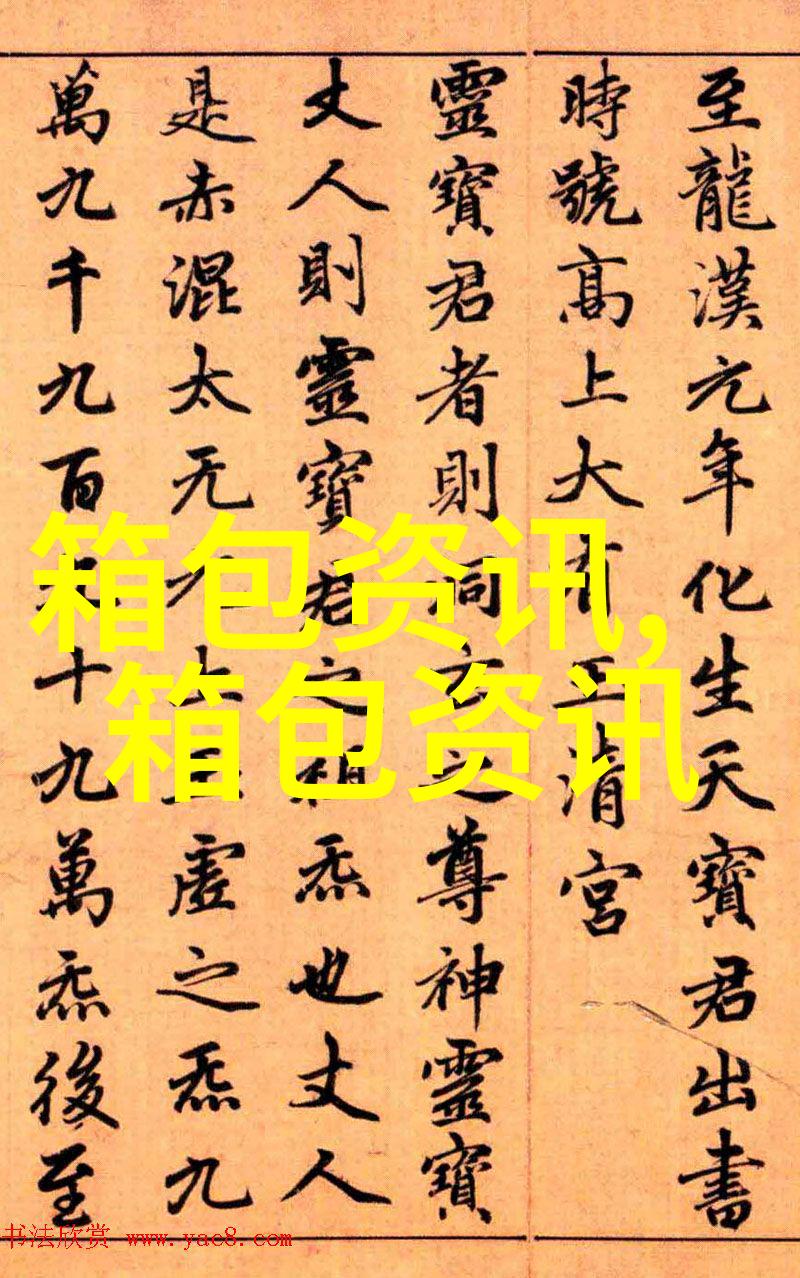 至龍漢元年化生天寶君出書
時號高上大有玉清宮
靈寶君者則洞玄之尊神靈寶
丈人則靈寶君之祖炁也丈人
是赤混太无元上玉虛之炁九
萬九千九百九十九萬炁後至
箱包资讯,
箱包资讯
书法欣赏 www.yac8.com